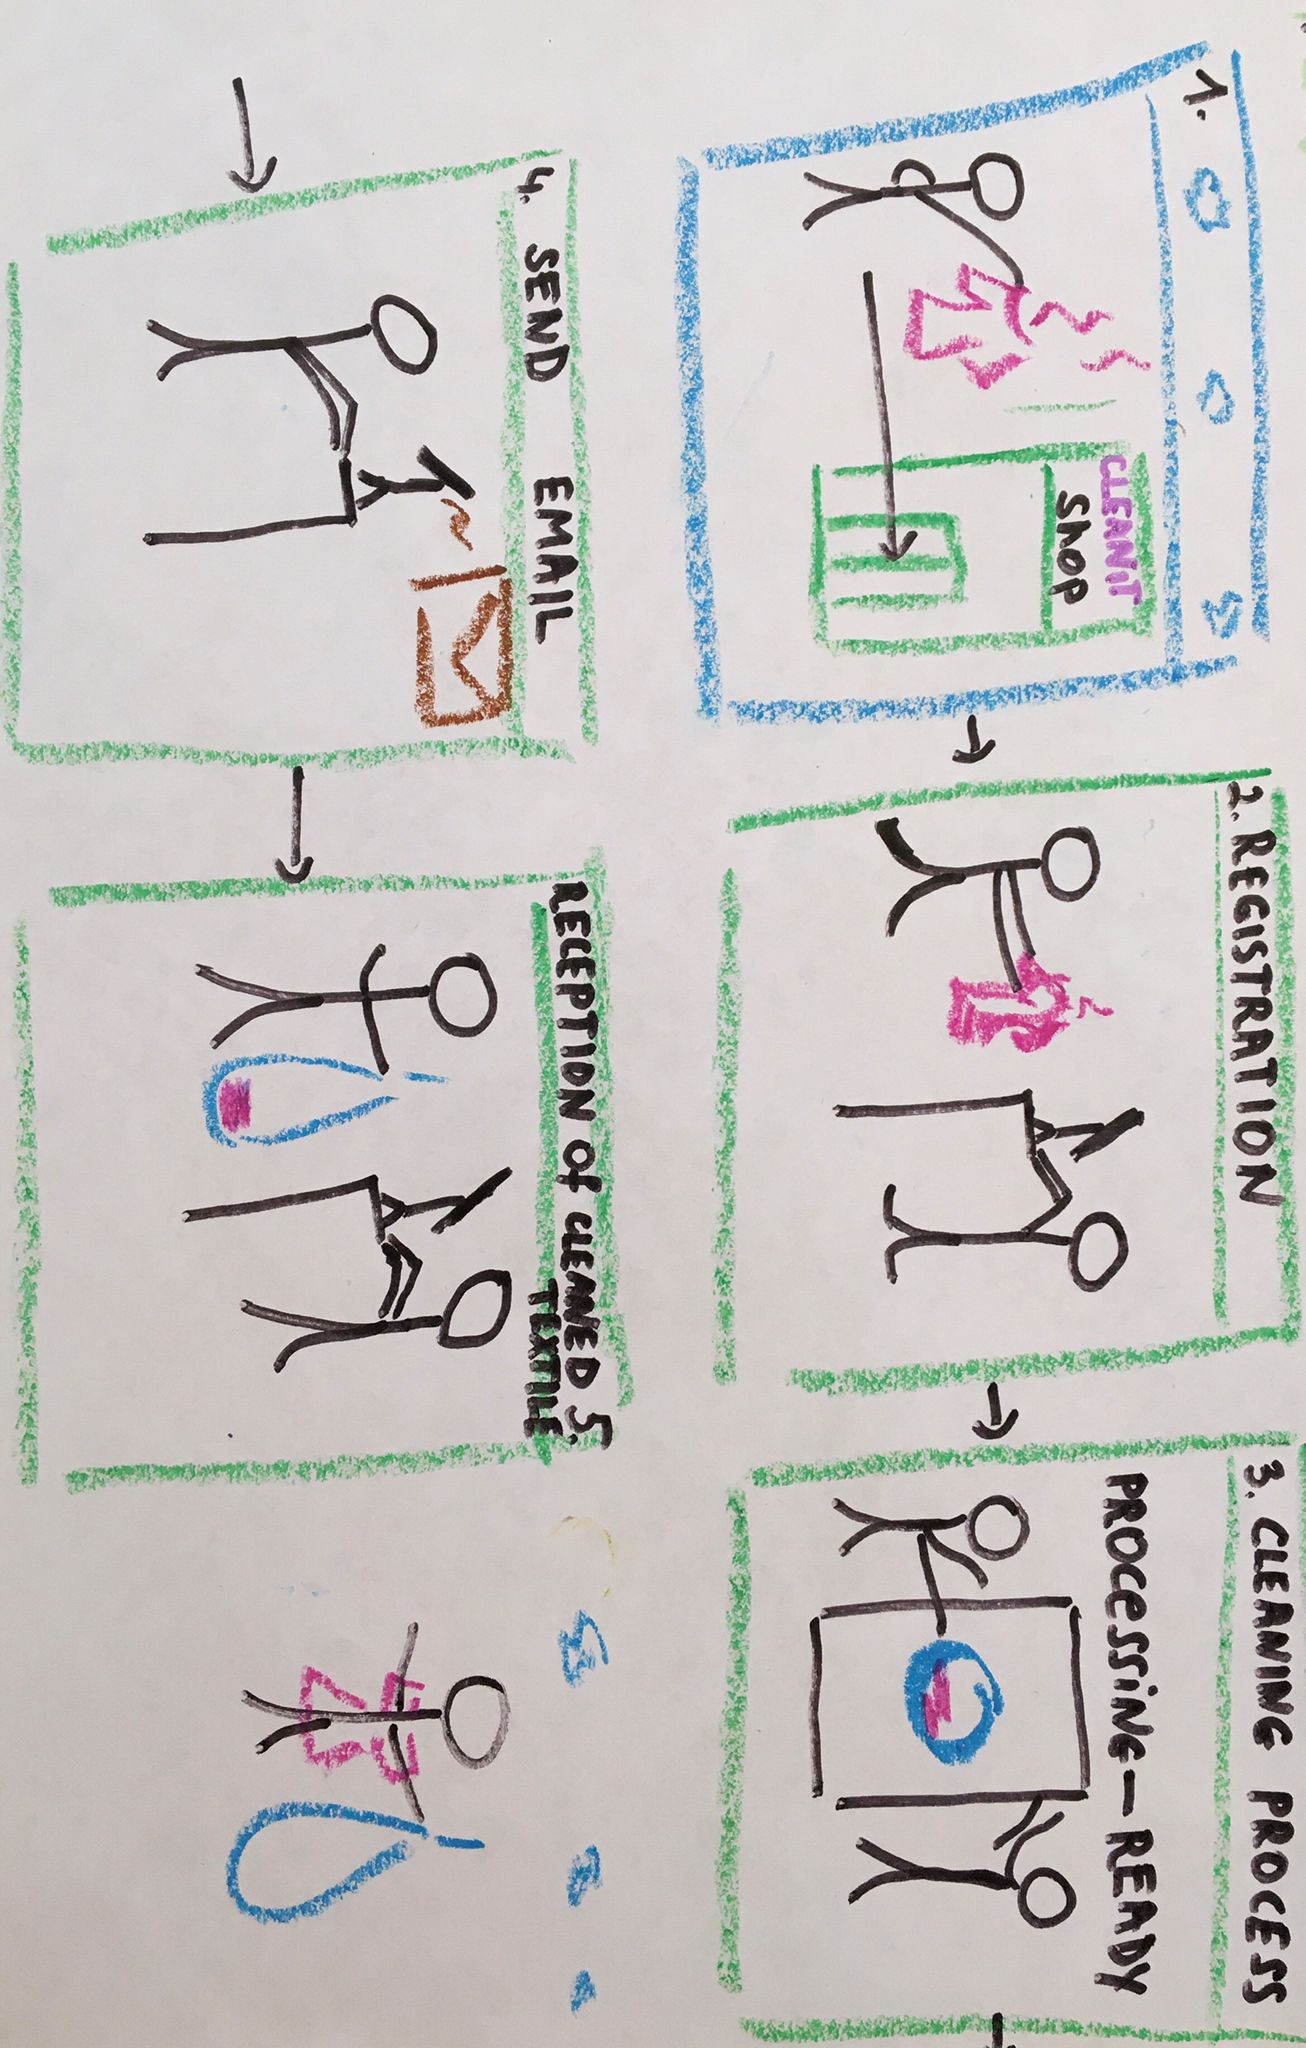 1.
CLEANiT
Shop
2. REGISTRATION
3. CLEANING PROCESS
PROCeSSiNG – READY
4. SEND EMAIL
RECEPTION Of CLEANED 5.
TEXTILE